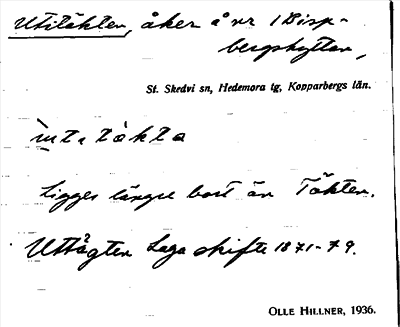 Utitäkten, åker å nr 1 Disp-
bergshyttan,
St. Skedvi sn, Hedemora tg, Kopparbergs län.
ùtitäkta
Ligger längre bort än Täkten.
Uttägten Laga skifte 1871-79.
OLLE HILLNER, 1936.